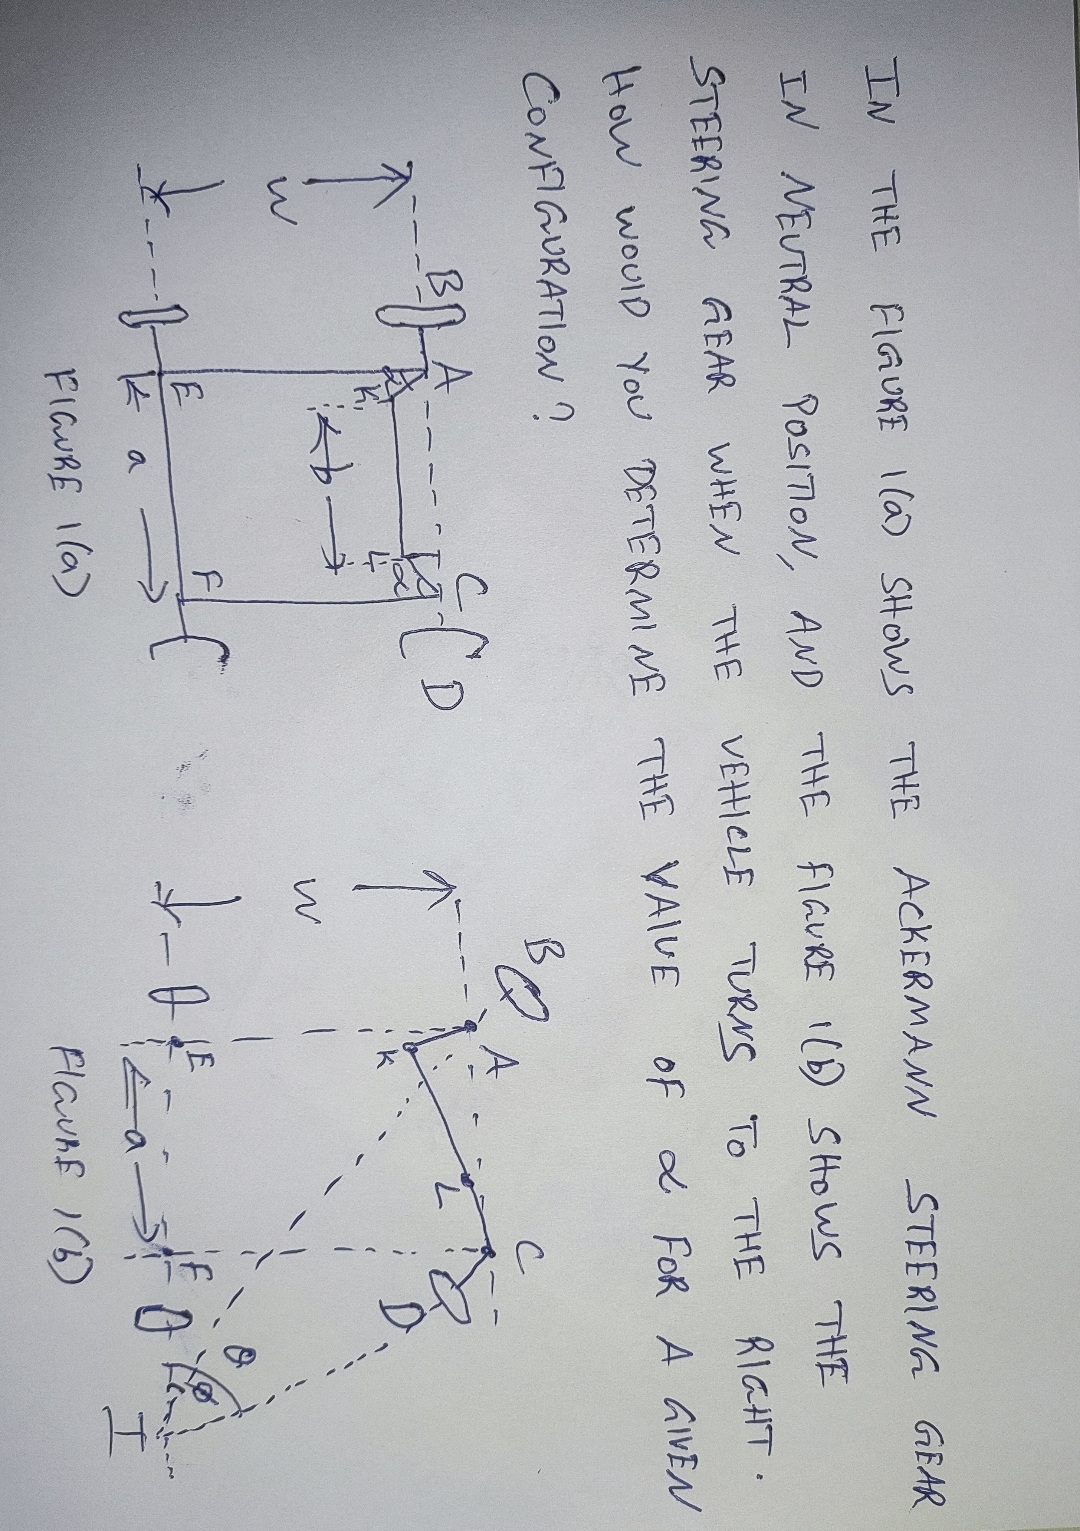 IN THE FIGURE 1(a) SHOWS THE ACKERMANN STEERING GEAR
IN NEUTRAL POSITION, AND THE FIGURE 1(b) SHOWS THE
STEERING GEAR WHEN THE VEHICLE TURNS TO THE RIGHT.
HOW WOULD YOU DETERMINE THE VALUE OF α FOR A GIVEN
CONFIGURATION?
B A C D
α K L α
b
w
E F
a
FIGURE 1(a)
B A C
K L D
w
E F θ
φ
a I
FIGURE 1(b)